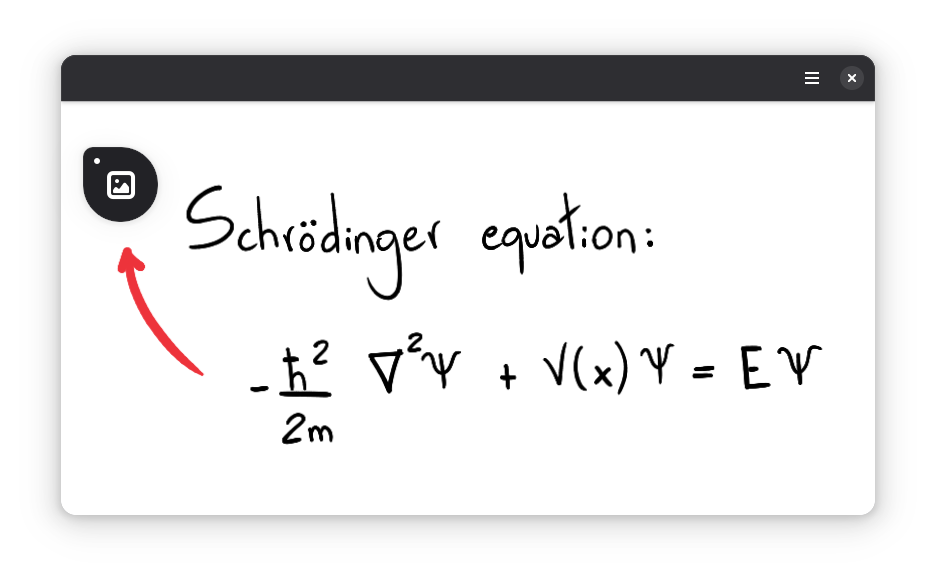 Schrödinger equation:
- ħ² / 2m ∇²Ψ + V(x) Ψ = E Ψ